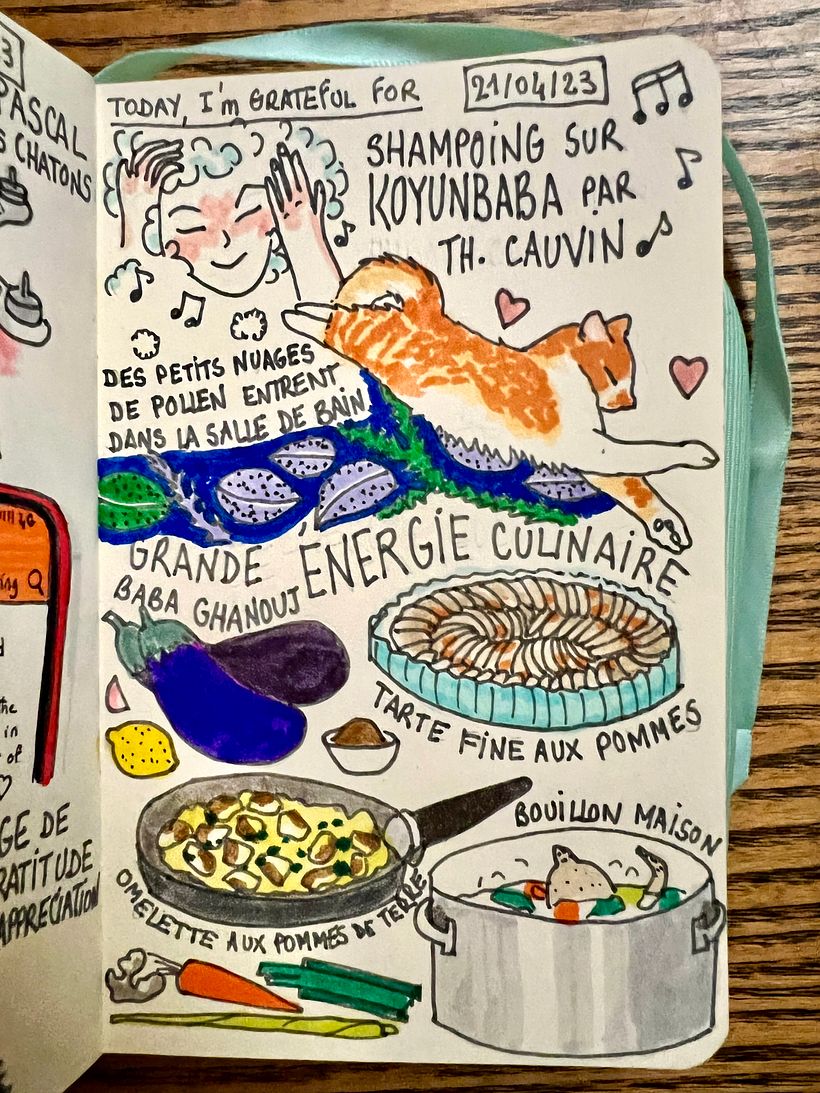 3
PASCAL
S CHATONS
ing Q
the
in
of
GE DE
RATITUDE
APPRECIATION
TODAY, I'm GRATEFUL FOR
21/04/23
SHAMPOING SUR
KOYUNBABA PAR
TH. CAUVIN
DES PETITS NUAGES
DE POLLEN ENTRENT
DANS LA SALLE DE BAIN
GRANDE ÉNERGIE CULINAIRE
BABA GHANOUJ
TARTE FINE AUX POMMES
BOUILLON MAISON
OMELETTE AUX POMMES DE TERRE